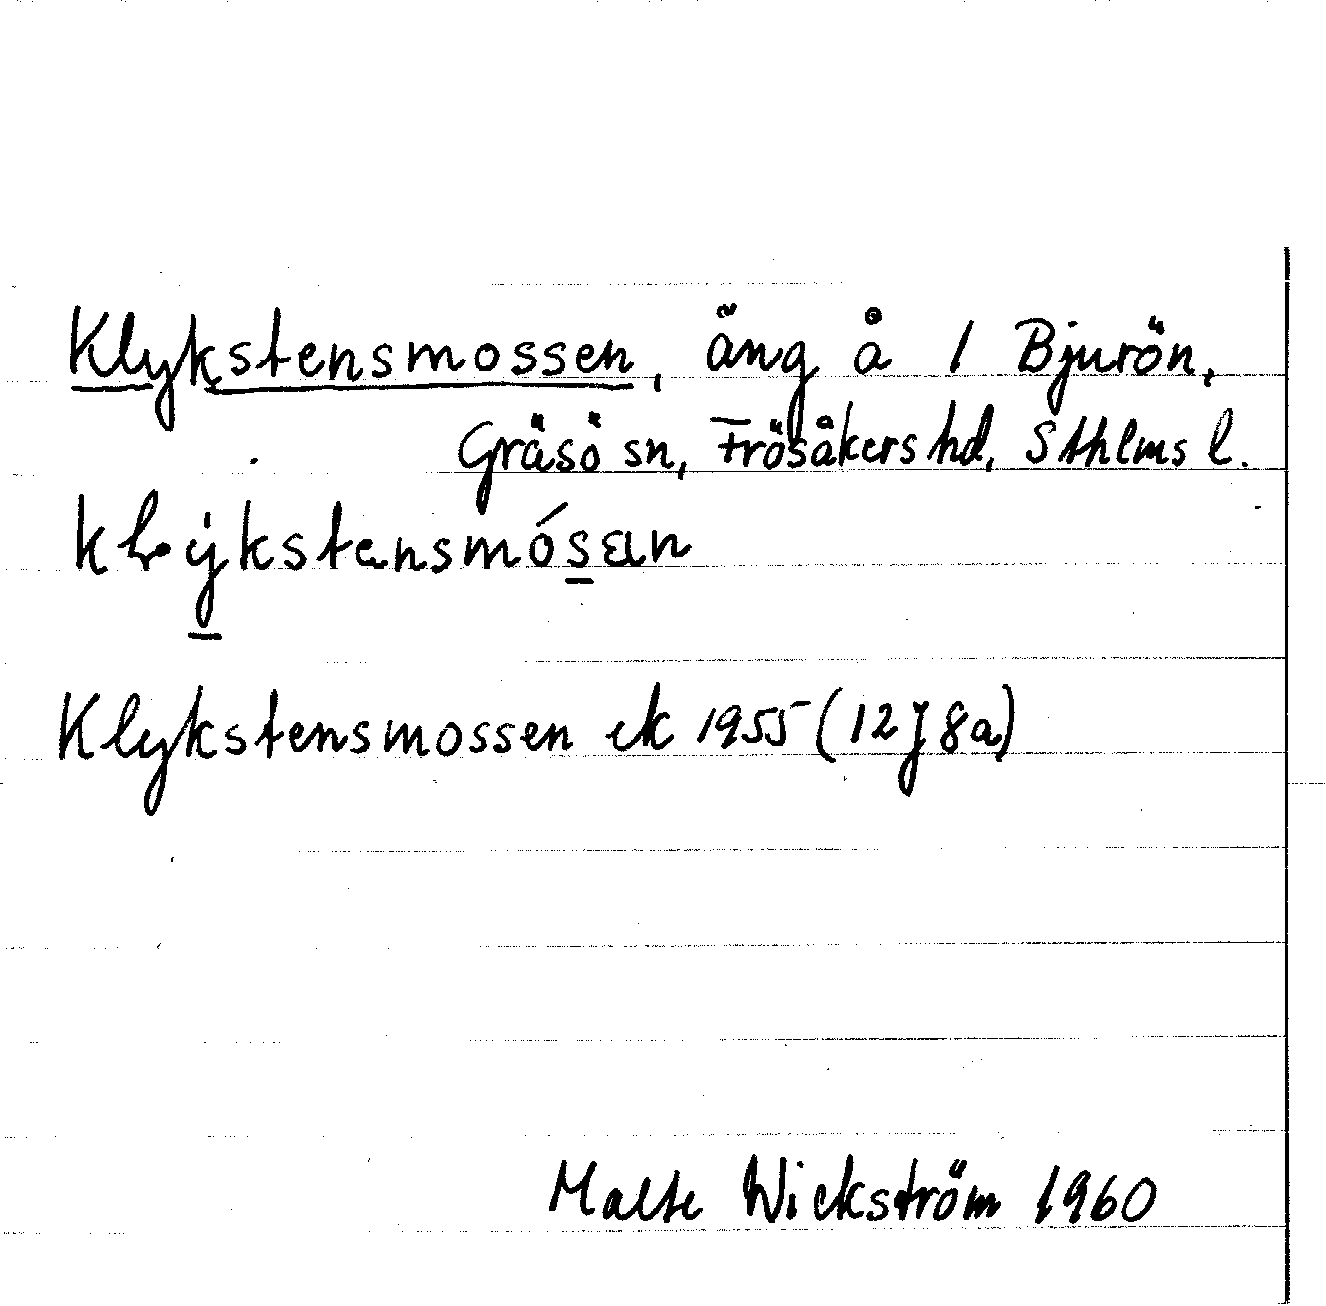 Klykstensmossen, äng å 1 Bjurön,
Gräsö sn, Frösåkers hd, Sthlms l.
Klykstensmossen ek 1955 (12J8a)
Malte Wickström 1960